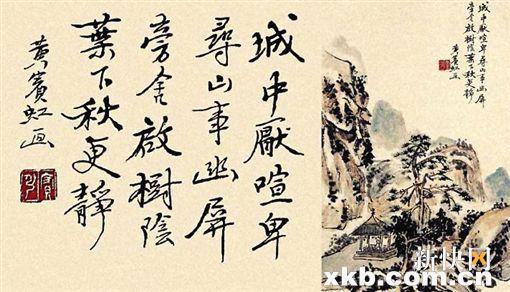 城中厭喧卑
尋山事幽屏
旁舍啟樹陰
葉下秋更靜
黃賓虹画
城中厭喧卑尋山事幽屏
旁舍啟樹陰葉下秋更靜
黃賓虹画
新快网
xkb.com.cn